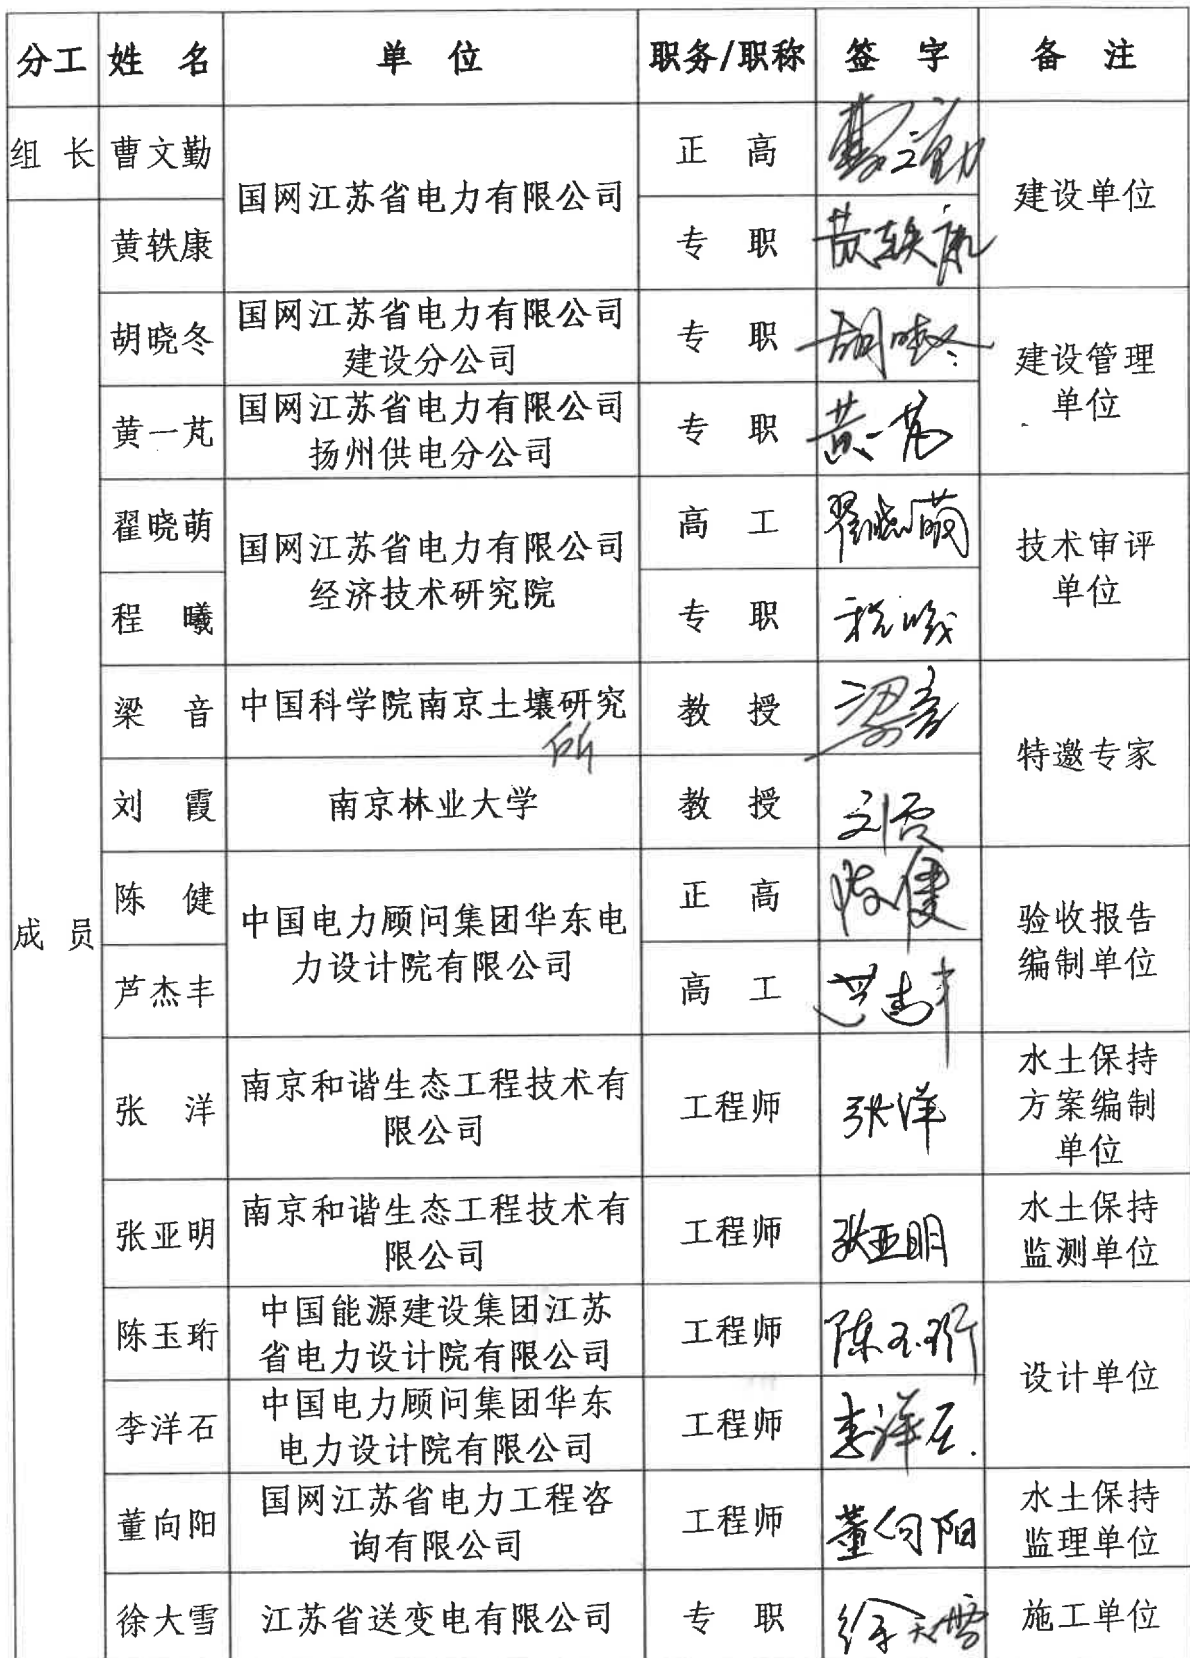 分工 姓 名 单 位 职务/职称 签 字 备 注
组 长 曹文勤 国网江苏省电力有限公司 正 高 曹文勤 建设单位
成 员
黄轶康 专 职 黄轶康
胡晓冬 国网江苏省电力有限公司
建设分公司 专 职 胡晓冬 建设管理
单位
黄一芃 国网江苏省电力有限公司
扬州供电分公司 专 职 黄一芃
翟晓萌 国网江苏省电力有限公司
经济技术研究院 高 工 翟晓萌 技术审评
单位
程 曦 专 职 程曦
梁 音 中国科学院南京土壤研究
所 教 授 梁音 特邀专家
刘 霞 南京林业大学 教 授 刘霞
陈 健 中国电力顾问集团华东电
力设计院有限公司 正 高 陈健 验收报告
编制单位
芦杰丰 高 工 芦杰丰
张 洋 南京和谐生态工程技术有
限公司 工程师 张洋 水土保持
方案编制
单位
张亚明 南京和谐生态工程技术有
限公司 工程师 张亚明 水土保持
监测单位
陈玉珩 中国能源建设集团江苏
省电力设计院有限公司 工程师 陈玉珩 设计单位
李洋石 中国电力顾问集团华东
电力设计院有限公司 工程师 李洋石
董向阳 国网江苏省电力工程咨
询有限公司 工程师 董向阳 水土保持
监理单位
徐大雪 江苏省送变电有限公司 专 职 徐大雪 施工单位